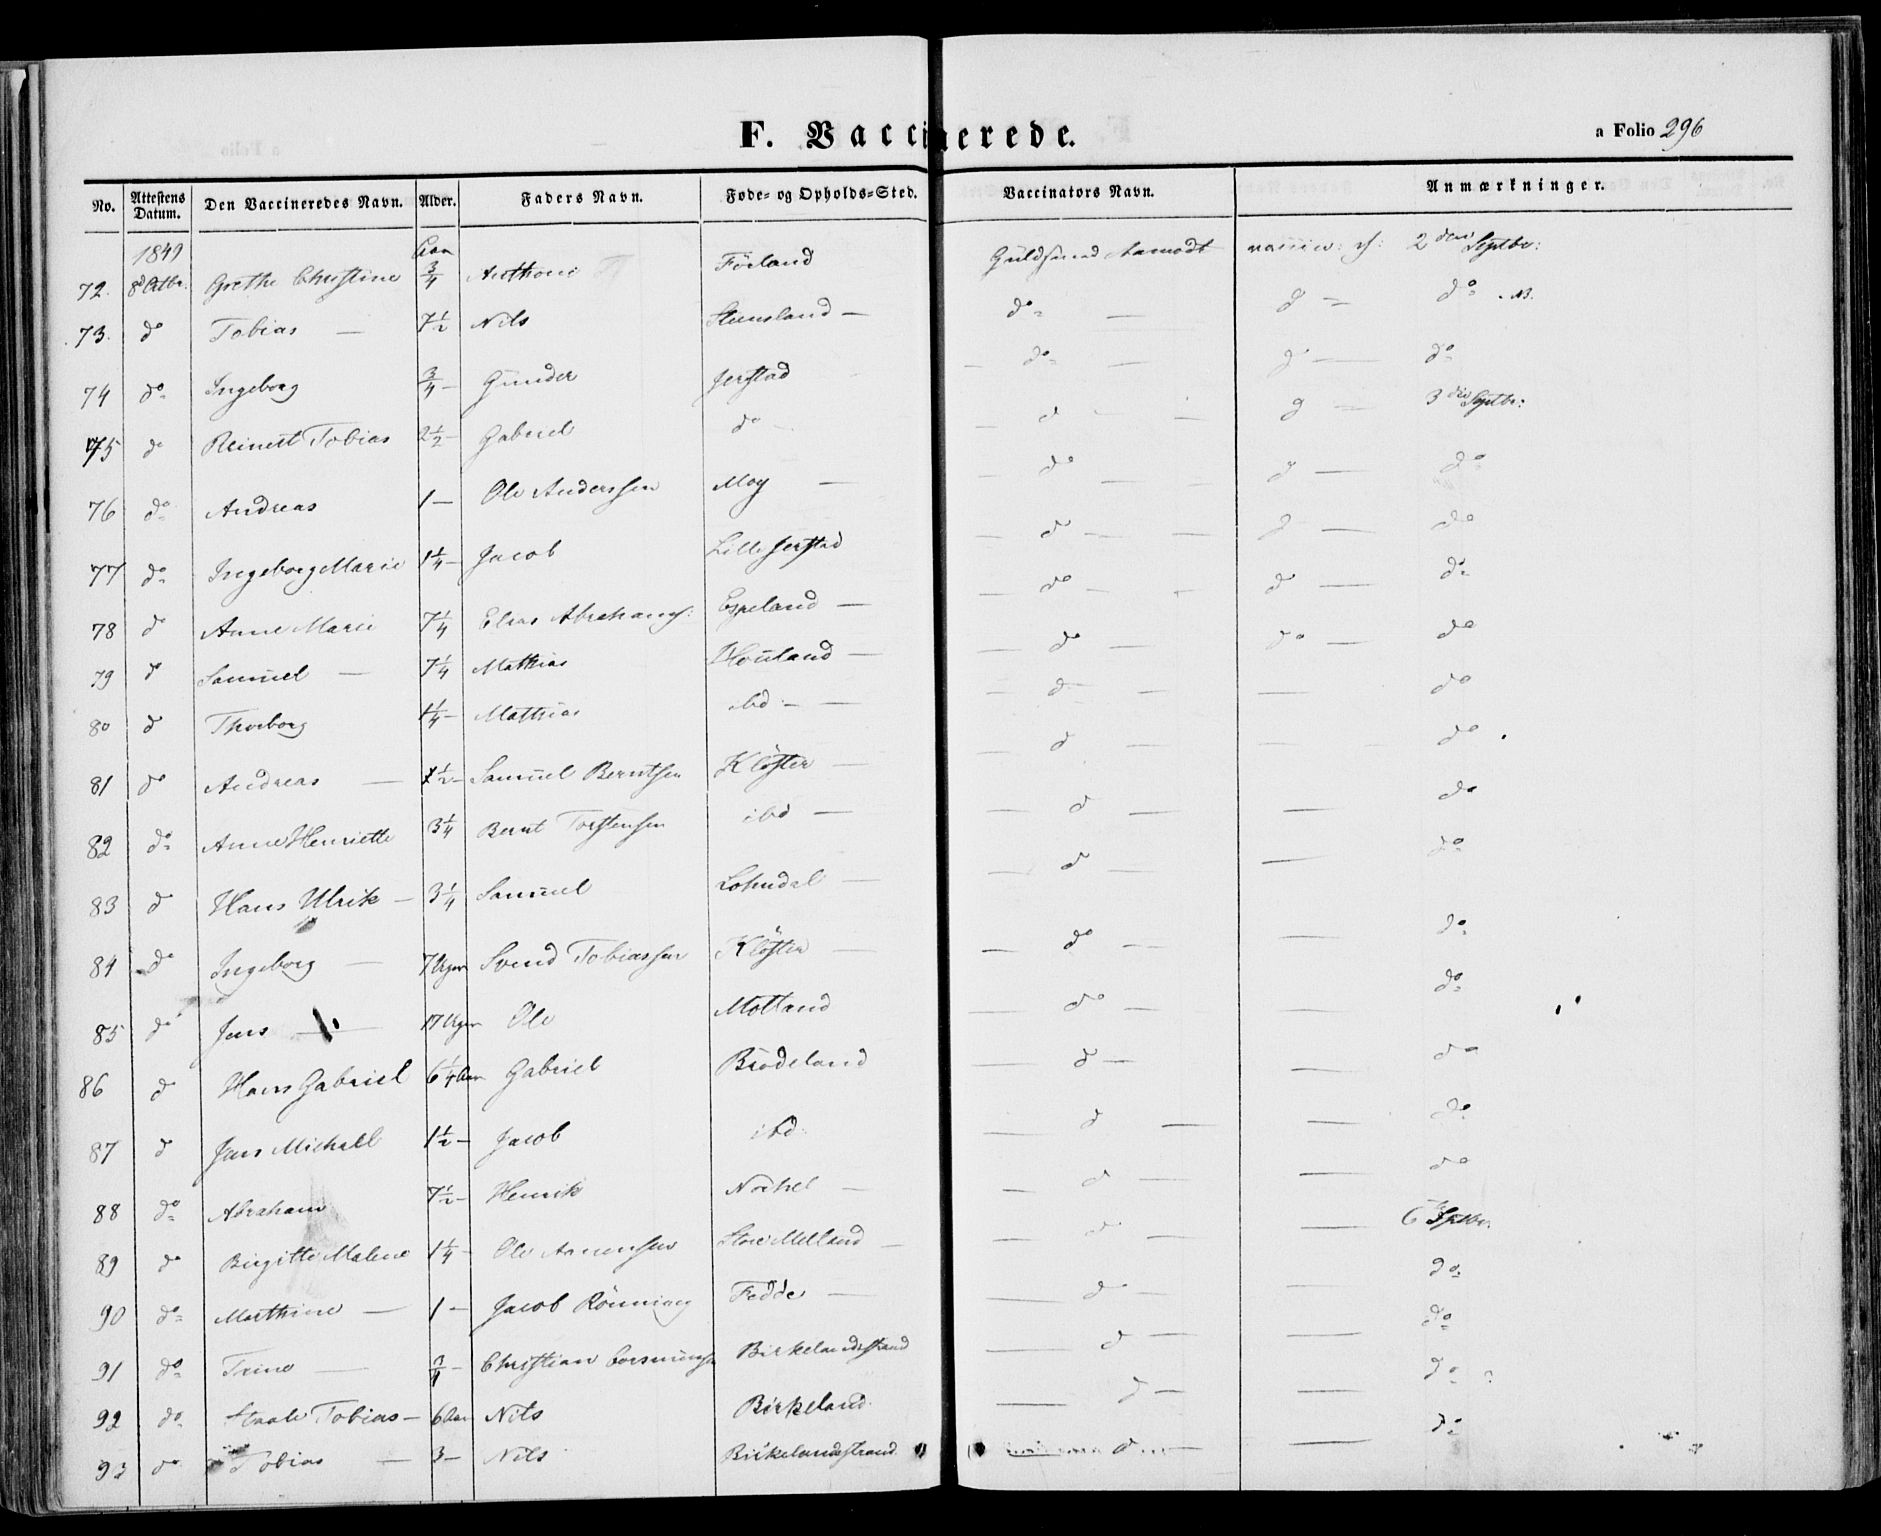 F. Vaccinerede.
a Folio 296
No. Attestens Datum. Den Vaccineredes Navn. Alder. Faders Navn. Føde- og Opholds-Sted. Vaccinators Navn. Anmærkninger.
1849 Aar
72. 8 Octbr. Grethe Christine 3/4 Anthoni Förland Guldsmed Aamodt 2den Septbr:
73. do Tobias — 7 1/2 Nils Steensland — do — d — do
74 do Ingeborg 3/4 — Gunder Jerstad — do — d — do
75 do Reinert Tobias 2 1/2 — Gabriel do d — d — 3die Septbr:
76 do Andreas 1 — Ole Anderssen Moy — — do — d — do
77 do Ingeborg Marie 1 1/4 — Jacob Lille Jerstad — do — d — do
78 do Anne Marie 7 1/4 Elias Abrahams: Espeland — — do — do — do
79 do Samuel — 7 1/4 Mathias Houland — — do — do — do
80 do Thorborg 1 1/4 — Mathias ibd — — d — — do
81 do Andreas — 1 1/2 — Samuel Berntsen Klöster — — d — — do
82 do Anne Henriette 3 1/4 Bernt Torstensen ibd — — d — — do
83 d Hans Ulrik — 3 1/4 Samuel Lohndal — — d — — do
84 do Ingeborg — 7 Uger Svend Tobiassen Klöster — — do — — do
85 do Jens — 17 Uger Ole Motland — do — — do
86 d Hans Gabriel 6 1/4 Aar Gabriel Brodeland — d — — do
87 d Jens Michall 1 1/2 — Jacob ibd — d — — do
88 do Abraham 7 1/2 — Henrik — — d — — do
89 do Birgitte Malene 1 1/4 — Ole Store Melland — — d — — 6 Septbr.
90 do Marthine — 1 — Jacob Rönning Fedde — — do — — do
91 do Trine — 3/4 — Christian Birkelandsstrand — d — — do
92 do Staale Tobias — 6 Aar Nils Birkeland — d — — do
93 do Tobias — 3 — Nils Birkelandsstrand — d — — do